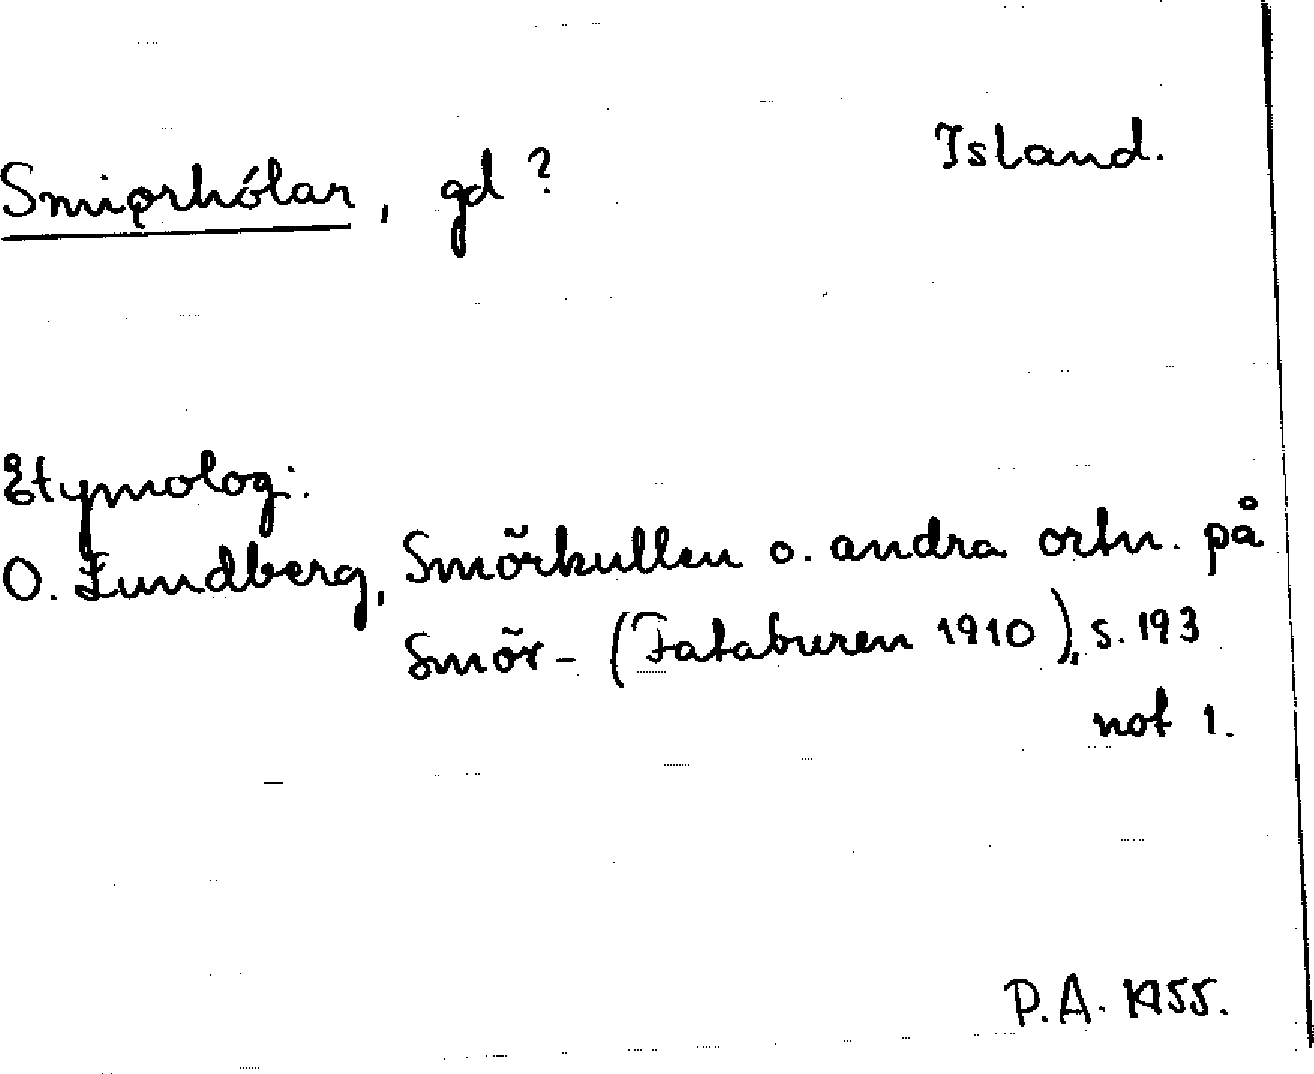 Island.
Smiǫrhólar, gd ?
Etymolog.:
O. Lundberg, Smörkullen o. andra ortn. på
Smör- (Fataburen 1910), s. 193
not 1.
P.A. 1955.